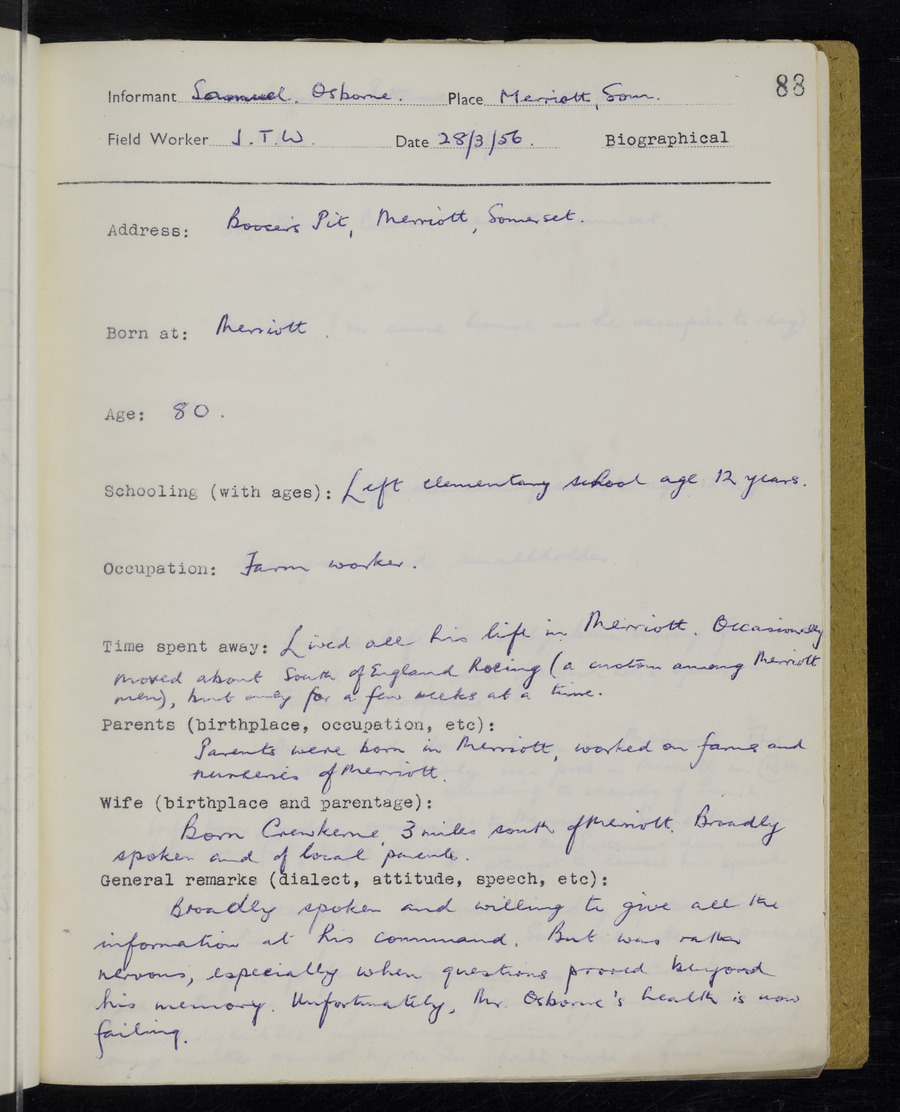 88
Informant Samuel Osborne. Place Merriott, Som.
Field Worker J.T.W. Date 28/3/56. Biographical
Address: Boozer's Pit, Merriott, Somerset.
Born at: Merriott.
Age: 80.
Schooling (with ages): Left elementary school age 12 years.
Occupation: Farm worker.
Time spent away: Lived all his life in Merriott. Occasionally
moved about South of England (a custom among Merriott
men), but only for a few weeks at a time.
Parents (birthplace, occupation, etc):
Parents were born in Merriott, worked on farms and
nurseries of Merriott.
Wife (birthplace and parentage):
Born Crewkerne, 3 miles south of Merriott. Broadly
spoken and of local parents.
General remarks (dialect, attitude, speech, etc):
Broadly spoken and willing to give all the
information at his command. But was rather
nervous, especially when questions proved beyond
his memory. Unfortunately, Mr. Osborne's health is now
failing.